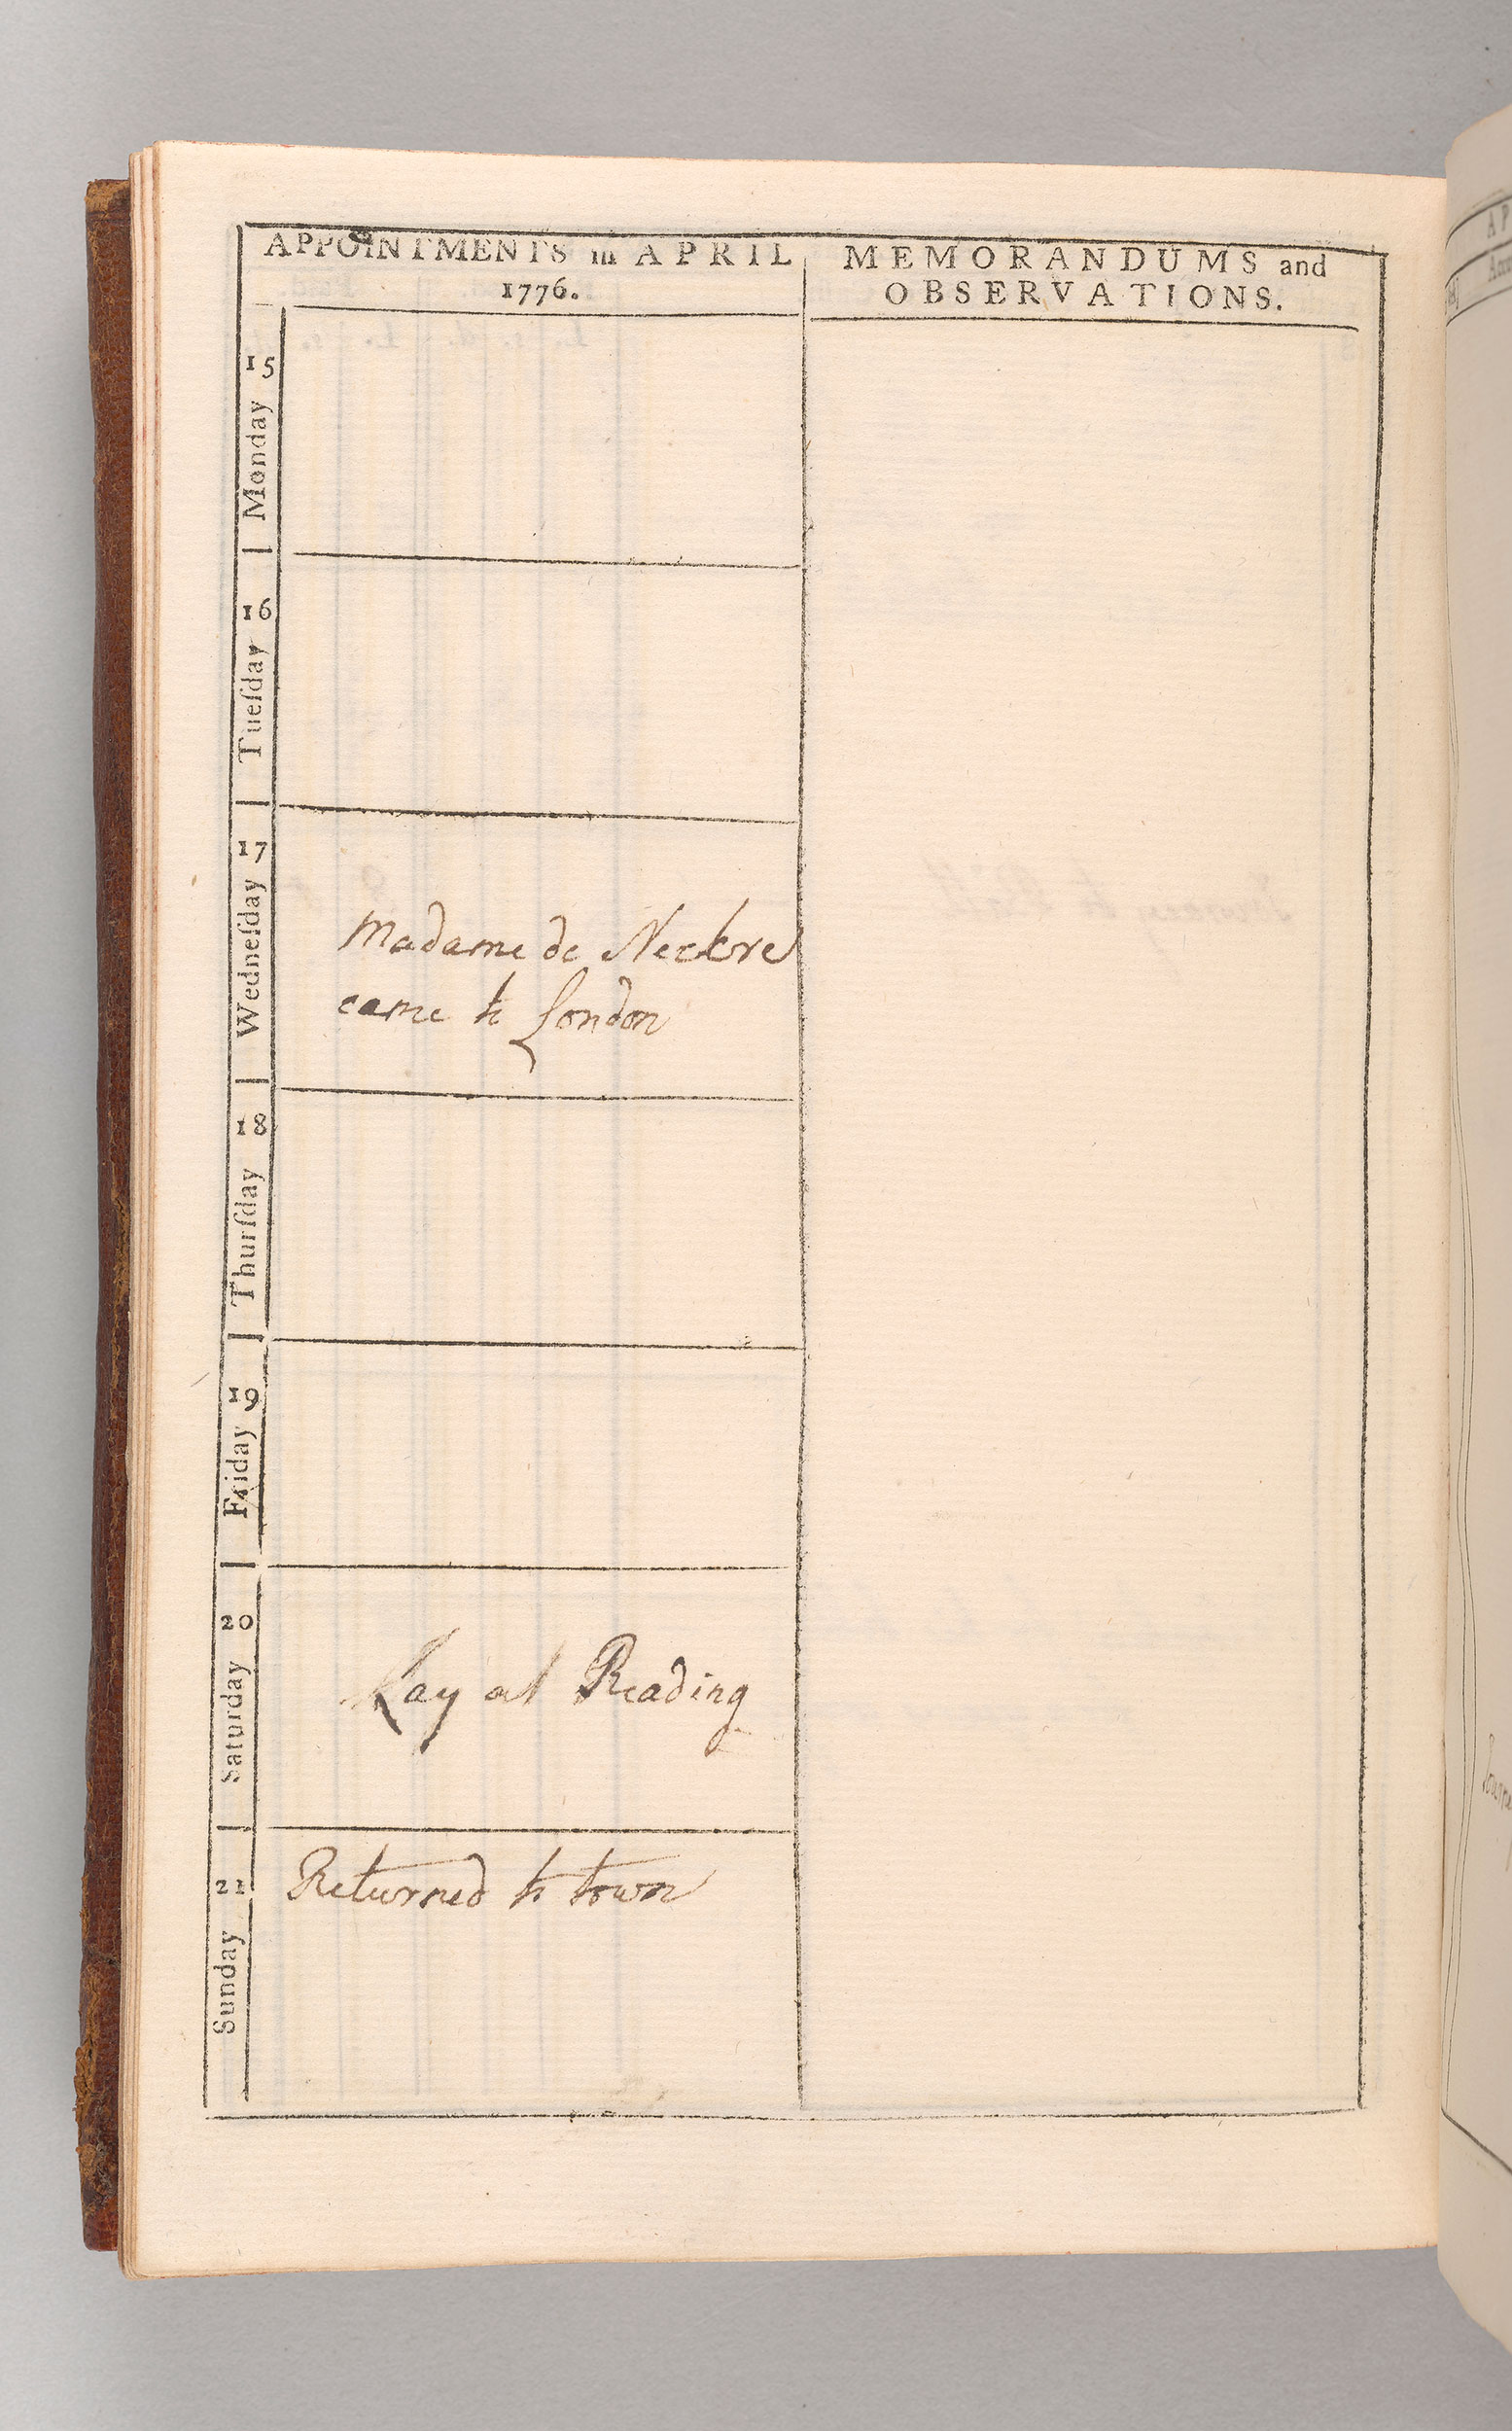 APPOINTMENTS in APRIL
1776.
MEMORANDUMS and
OBSERVATIONS.
15
Monday
16
Tueſday
17
Wedneſday
Madame de Neckre
came to London
18
Thurſday
19
Friday
20
Saturday
Lay at Reading
21
Sunday
Returned to town